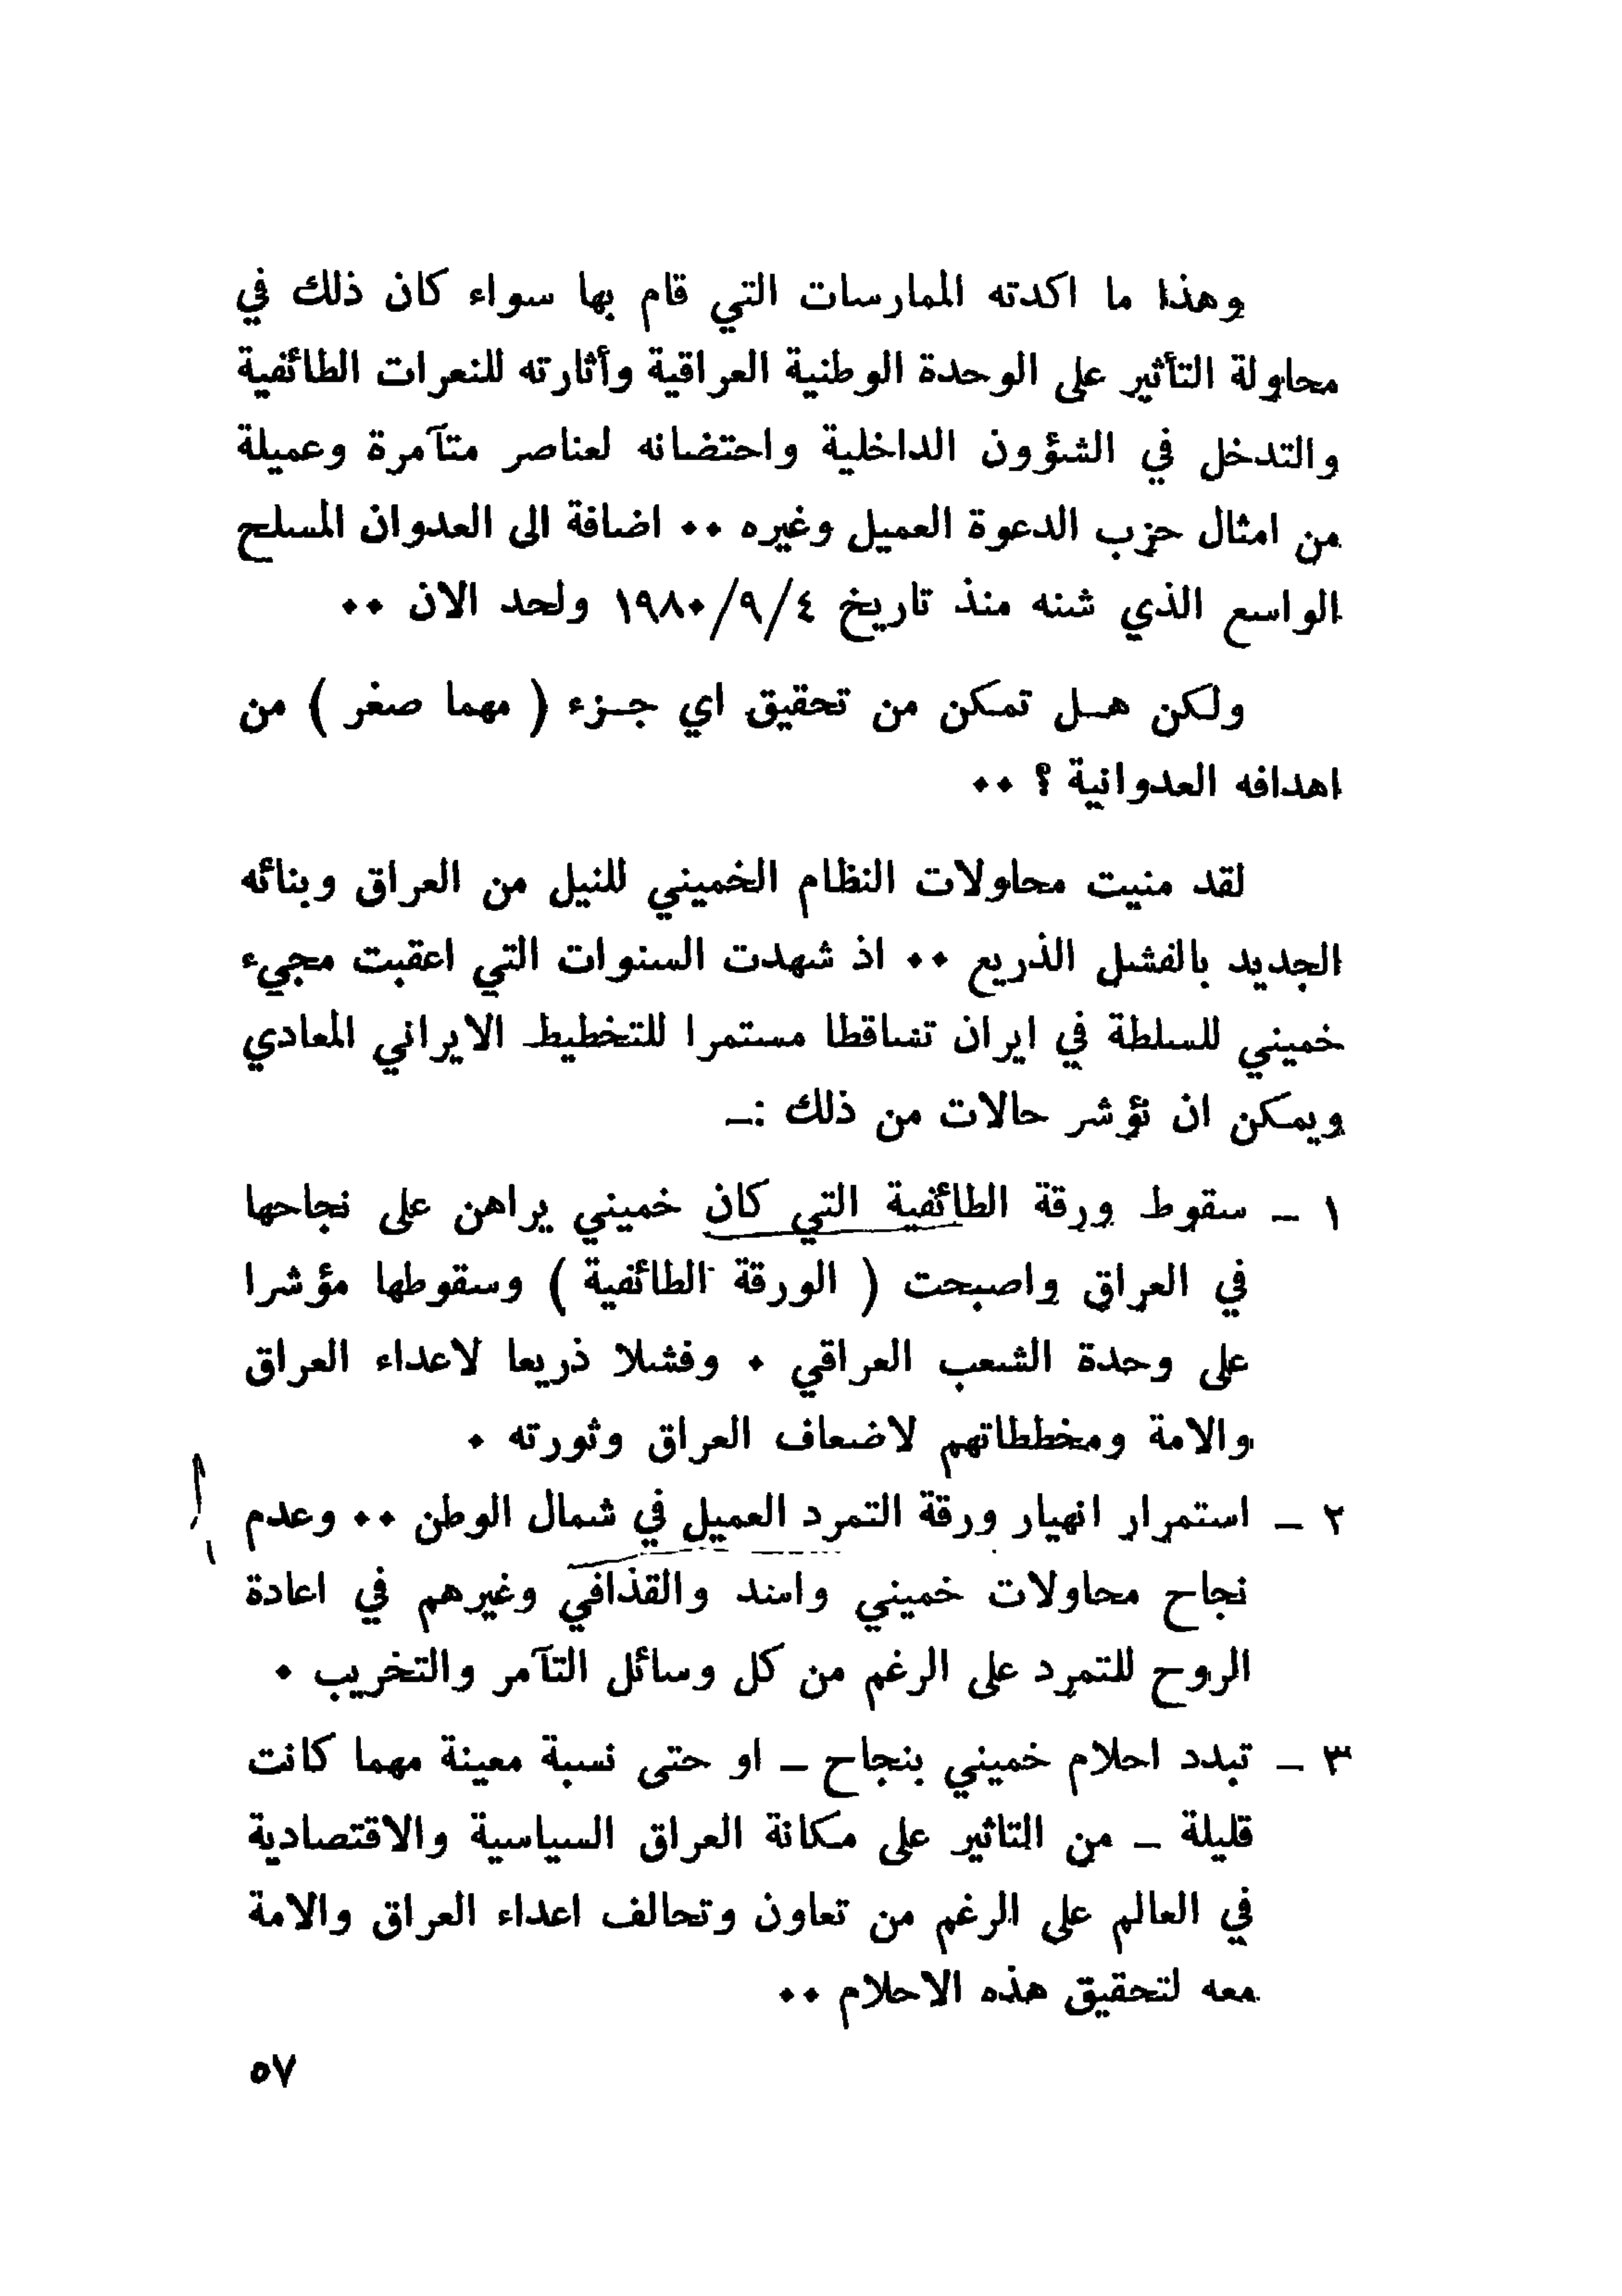 وهذا ما اكدته الممارسات التي قام بها سواء كان ذلك في
محاولة التأثير على الوحدة الوطنية العراقية وأثارته للنعرات الطائفية
والتدخل في الشؤون الداخلية واحتضانه لعناصر متآمرة وعميلة
من امثال حزب الدعوة العميل وغيره ٠٠ اضافة الى العدوان المسلح
الواسع الذي شنه منذ تاريخ ١٩٨٠/٩/٤ ولحد الان ٠٠
ولكن هـل تمكن من تحقيق اي جـزء ( مهما صغر ) من
اهدافه العدوانية ؟ ٠٠
لقد منيت محاولات النظام الخميني للنيل من العراق وبنائه
الجديد بالفشل الذريع ٠٠ اذ شهدت السنوات التي اعقبت مجيء
خميني للسلطة في ايران تساقطا مستمرا للتخطيط الايراني المعادي
ويمكن ان نؤشر حالات من ذلك :ـ
١ ـ سقوط ورقة الطائفية التي كان خميني يراهن على نجاحها
في العراق واصبحت ( الورقة الطائفية ) وسقوطها مؤشرا
على وحدة الشعب العراقي ٠ وفشلا ذريعا لاعداء العراق
والامة ومخططاتهم لاضعاف العراق وثورته ٠
٢ ـ استمرار انهيار ورقة التمرد العميل في شمال الوطن ٠٠ وعدم
نجاح محاولات خميني واسد والقذافي وغيرهم في اعادة
الروح للتمرد على الرغم من كل وسائل التآمر والتخريب ٠
٣ ـ تبدد احلام خميني بنجاح ـ او حتى نسبة معينة مهما كانت
قليلة ـ من التاثير على مكانة العراق السياسية والاقتصادية
في العالم على الرغم من تعاون وتحالف اعداء العراق والامة
معه لتحقيق هذه الاحلام ٠٠
٥٧